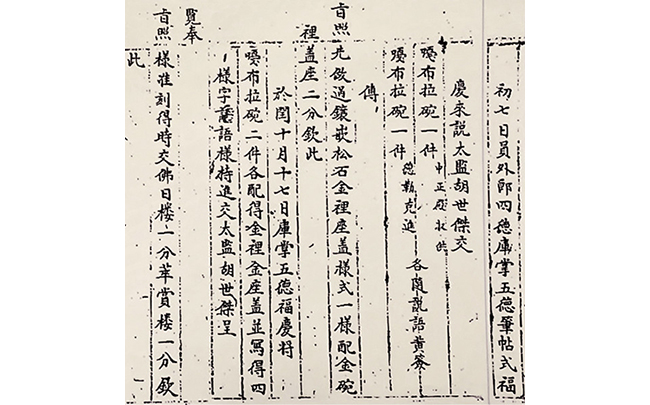 初七日員外郎四德庫掌五德筆帖式福
慶來說太監胡世傑交
嘎布拉碗一件 中正殿收供
嘎布拉碗一件 德勒克進 各隨說語黃簽
傳
旨照先做過鑲嵌松石金裡座蓋樣式一樣配金碗
裡蓋座二分欽此
於閏十月十七日庫掌五德福慶將
嘎布拉碗二件各配得金裡金座蓋並寫得四
樣字說語樣持進交太監胡世傑呈
覽奉
旨照樣准刻得時交佛日樓一分萃賞樓一分欽
此